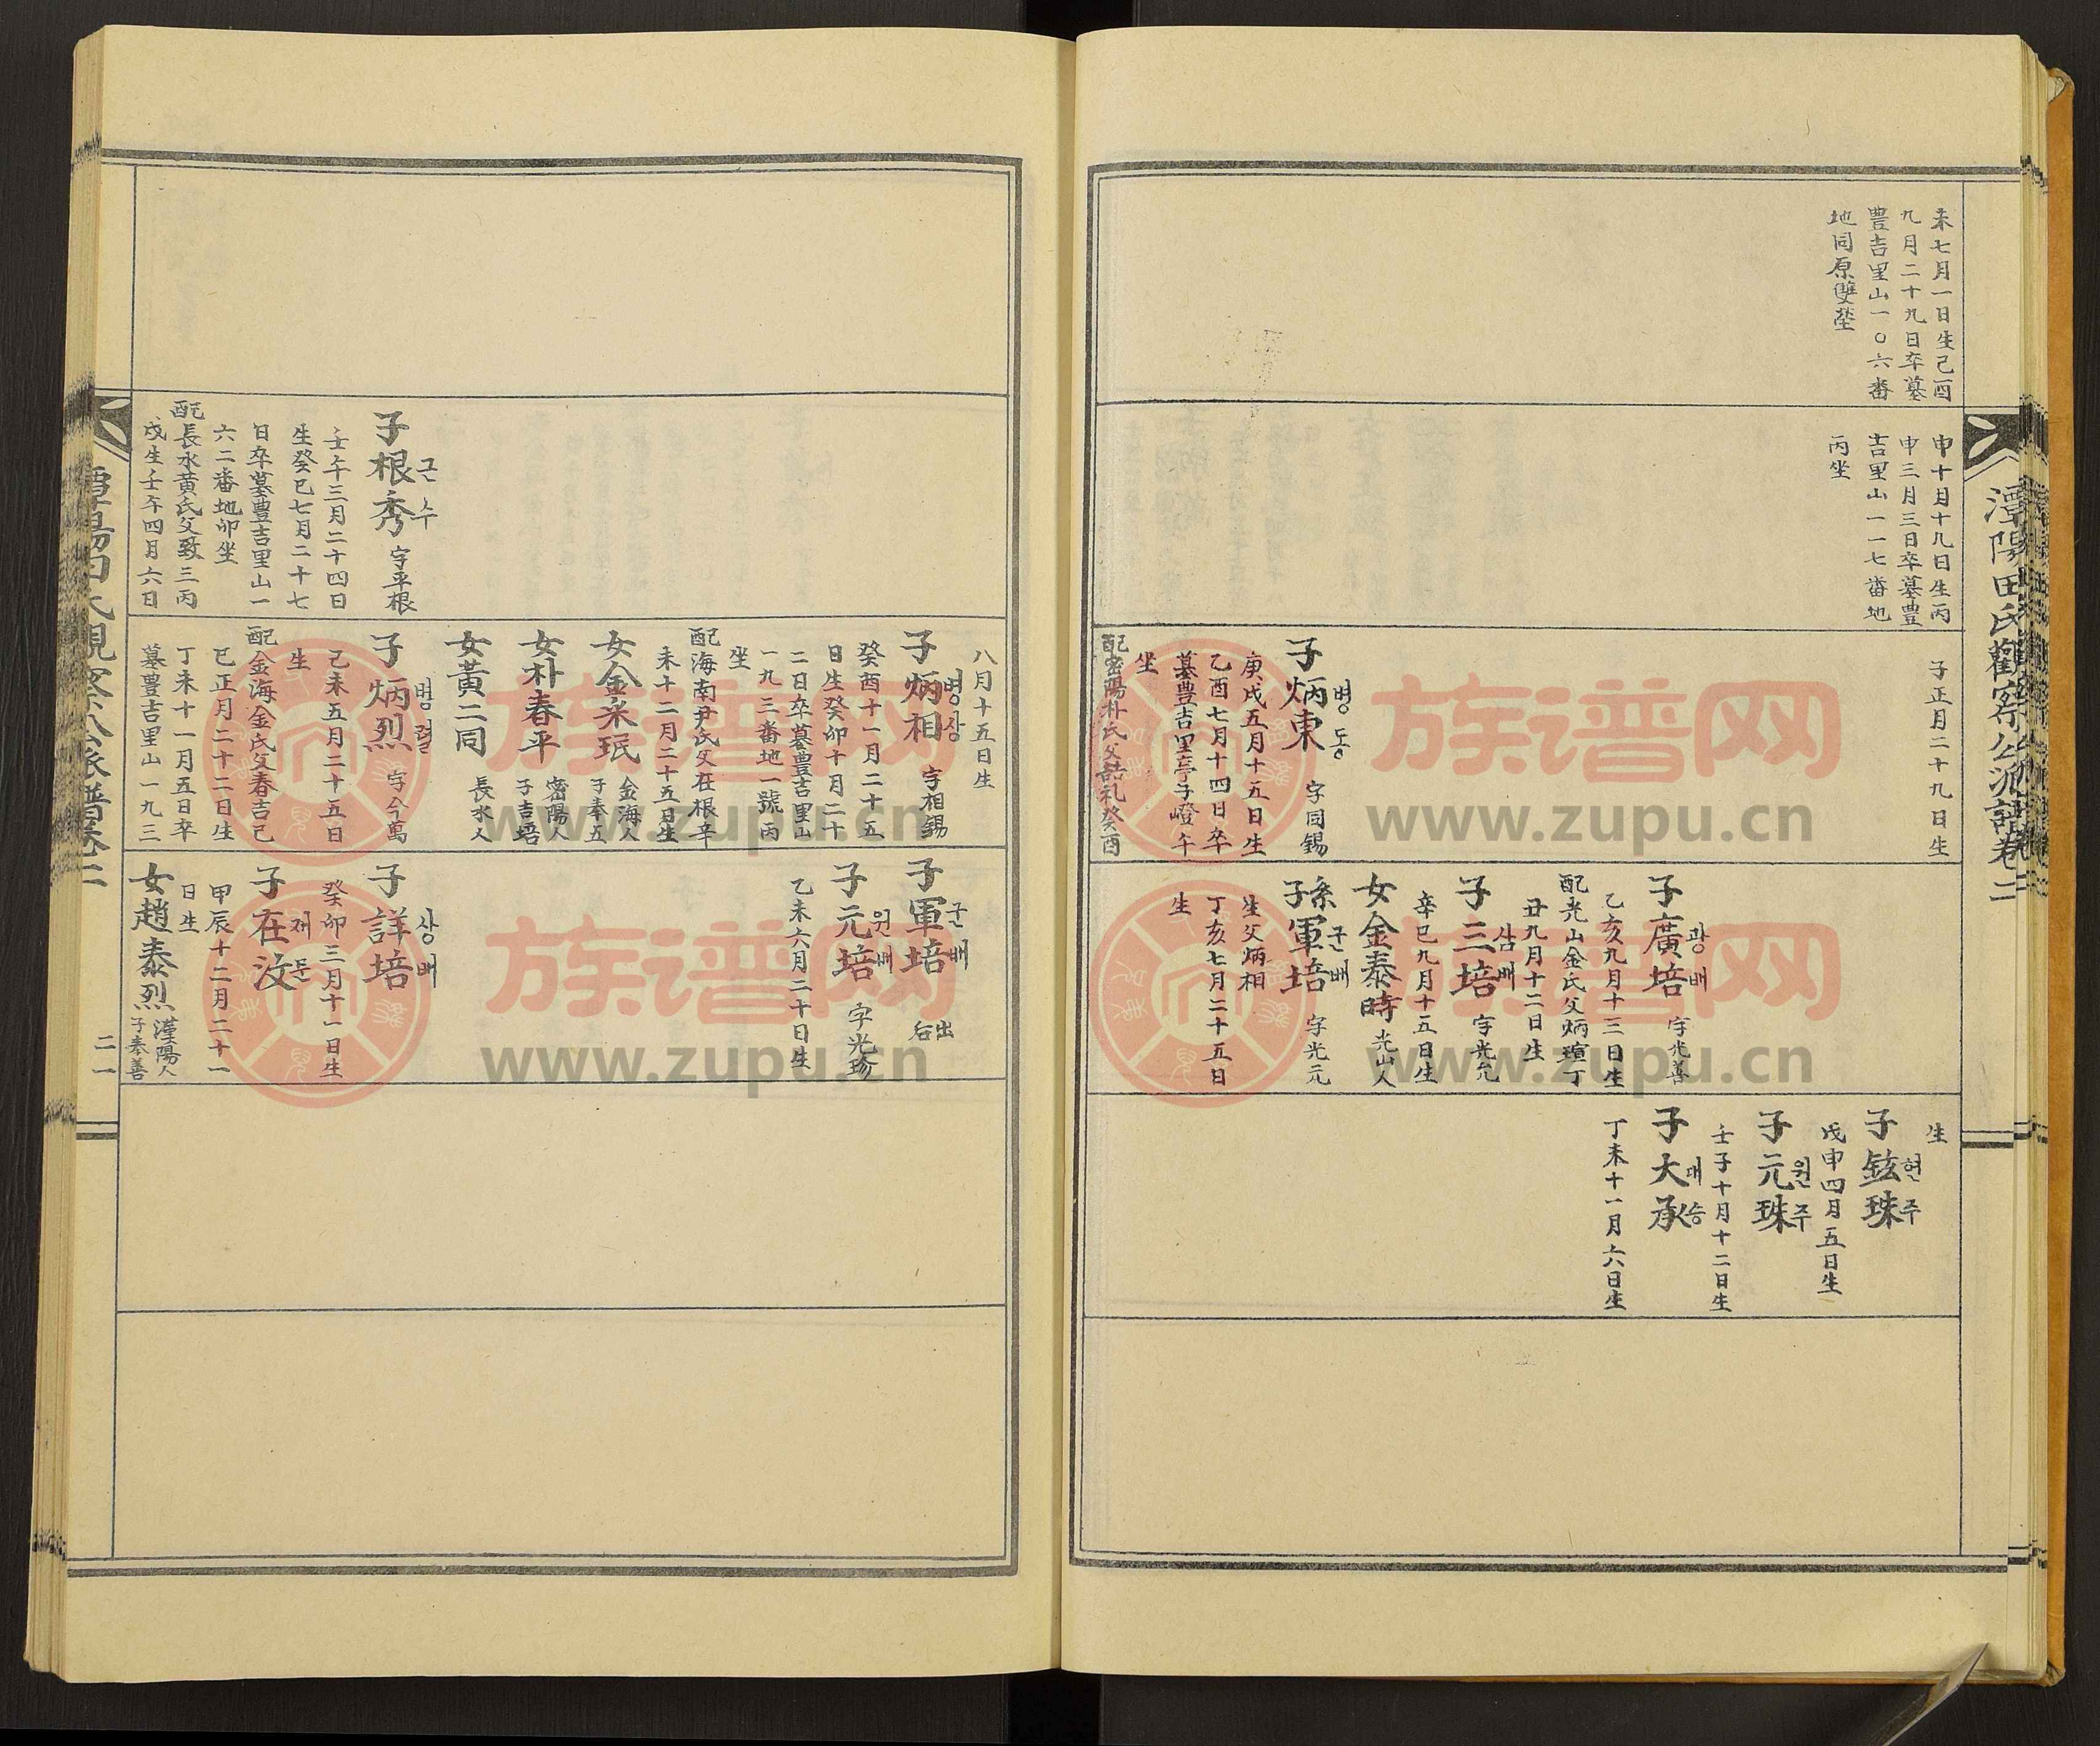 潭陽田氏觀察公派譜卷二
未七月一日生己酉
九月二十九日卒墓
豊吉里山一〇六番
地同原雙塋
申十月十九日生丙
申三月三日卒墓豊
吉里山一一七番地
丙坐
子正月二十九日生
子炳東 병동 字同錫
庚戌五月十五日生
乙酉七月十四日卒
墓豊吉里亭子嶝午
坐
配密陽朴氏父喆礼癸酉
子廣培 광배 字光善
乙亥九月十三日生
配光山金氏父炳瑄丁
丑九月十二日生
子三培 삼배 字光允
辛巳九月十五日生
女金泰時 光山人
系子軍培 군배 字光元
生父炳相
丁亥七月二十五日
生
生
子鉉珠 현주
戊申四月五日生
子元珠 원주
壬子十月十二日生
子大承 대승
丁未十一月六日生
子根秀 근수 字平根
壬午三月二十四日
生癸巳七月二十七
日卒墓豊吉里山一
六二番地卯坐
配長水黃氏父致三丙
戌生壬午四月六日
八月十五日生
子炳相 병상 字相錫
癸酉十一月二十五
日生癸卯十月二十
二日卒墓豊吉里山
一九三番地一號丙
坐
配海南尹氏父在根辛
未十二月二十五日生
女金采珉 金海人 子奉五
女朴春平 密陽人 子吉培
女黃二同 長水人
子炳烈 병렬 字今萬
己未五月二十五日
生
配金海金氏父春吉己
巳正月二十二日生
丁未十一月五日卒
墓豊吉里山一九三
子軍培 군배 出后
子元培 원배 字光珍
乙未六月二十日生
子詳培 상배
癸卯三月十一日生
子在汶 재문
甲辰十二月二十一
日生
女趙泰烈 漢陽人 子泰善
二一
族谱网
www.zupu.cn
族谱网
www.zupu.cn
族谱网
www.zupu.cn
族谱网
www.zupu.cn